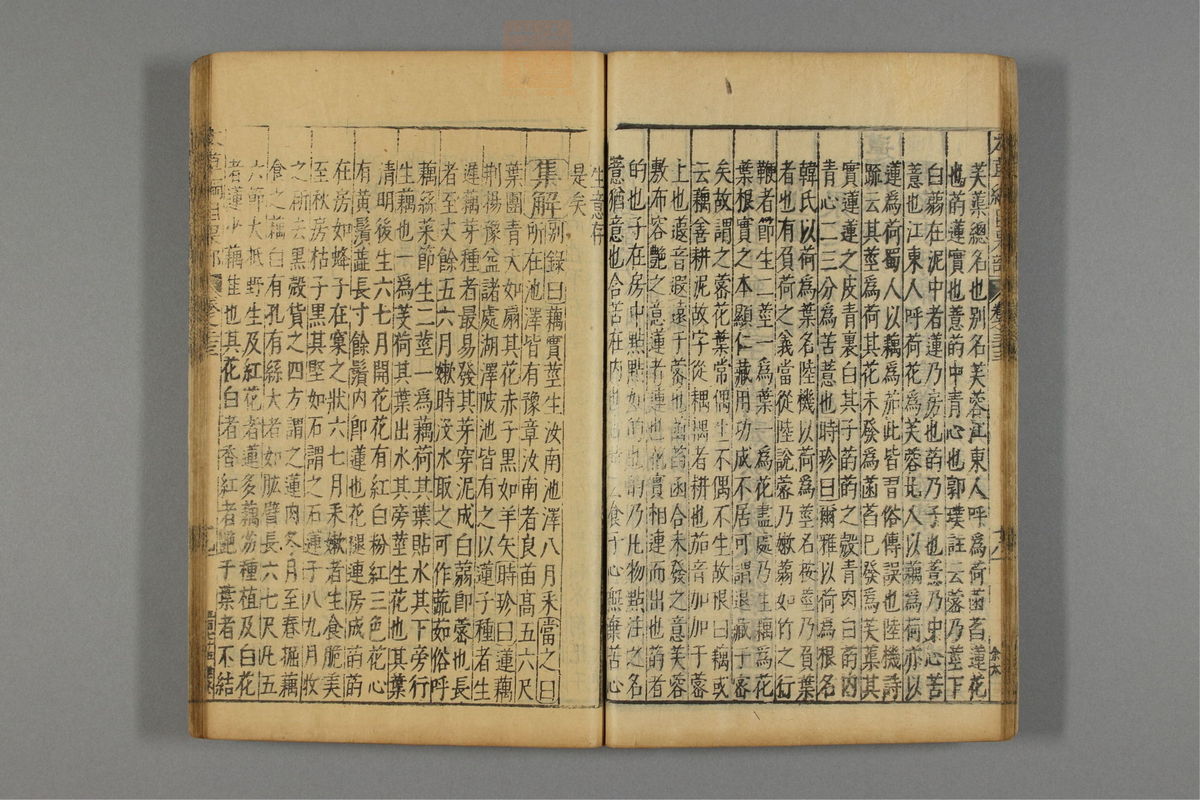 芙蕖總名也別名芙蓉江東人呼爲荷菡萏蓮花
也菂蓮實也薏菂中青心也郭璞註云蔤乃莖下
白蒻在泥中者蓮乃房也菂乃子也薏乃中心苦
薏也江東人呼荷花爲芙蓉北人以藕爲荷亦以
蓮爲荷蜀人以藕爲茄此皆習俗傳誤也陸機詩
䟽云其莖爲荷其花未發爲菡萏已發爲芙蕖其
實蓮蓮之皮青裏白其子菂菂之殻青肉白菂內
青心二三分爲苦薏也時珍曰爾雅以荷爲根名
韓氏以荷爲葉名陸機以荷爲莖名按莖乃負葉
者也有負荷之義當從陸說蔤乃嫩蒻如竹之行
鞭者節生二莖一爲葉一爲花盡處乃生藕爲花
葉根實之本顯仁藏用功成不居可謂退藏于密
矣故謂之蔤花葉常偶生不偶不生故根曰藕或
云藕善耕泥故字從耦耦者耕也茄音加加于蔤
上也蕸音遐遠于蔤也菡萏函合未發之意芙蓉
敷布容艷之意蓮者連也花實相連而出也菂者
的也子在房中點點如的也的乃凡物點注之名
薏猶意也含苦在內也古詩云食子心無棄苦心
生意存
是矣
集解別錄曰藕實莖生汝南池澤八月采當之曰
所在池澤皆有豫章汝南者良苗高五六尺
葉團青大如扇其花赤子黑如羊矢時珍曰蓮藕
荆揚豫益諸處湖澤陂池皆有之以蓮子種者生
遲藕芽種者最易發其芽穿泥成白蒻即蔤也長
者至丈餘五六月嫩時没水取之可作蔬茹俗呼
藕絲菜節生二莖一爲藕荷其葉貼水其下旁行
生藕也一爲芰荷其葉出水其旁莖生花也其葉
清明後生六七月開花花有紅白粉紅三色花心
有黃鬚蕋長寸餘鬚內即蓮也花褪連房成菂菂
在房如蜂子在窠之狀六七月采嫩者生食脆美
至秋房枯子黑其堅如石謂之石蓮子八九月收
之斫去黑殻貨之四方謂之蓮肉冬月至春掘藕
食之藕白有孔有絲大者如肱臂長六七尺凡五
六節大抵野生及紅花者蓮多藕劣種植及白花
者蓮少藕佳也其花白者香紅者艷千葉者不結